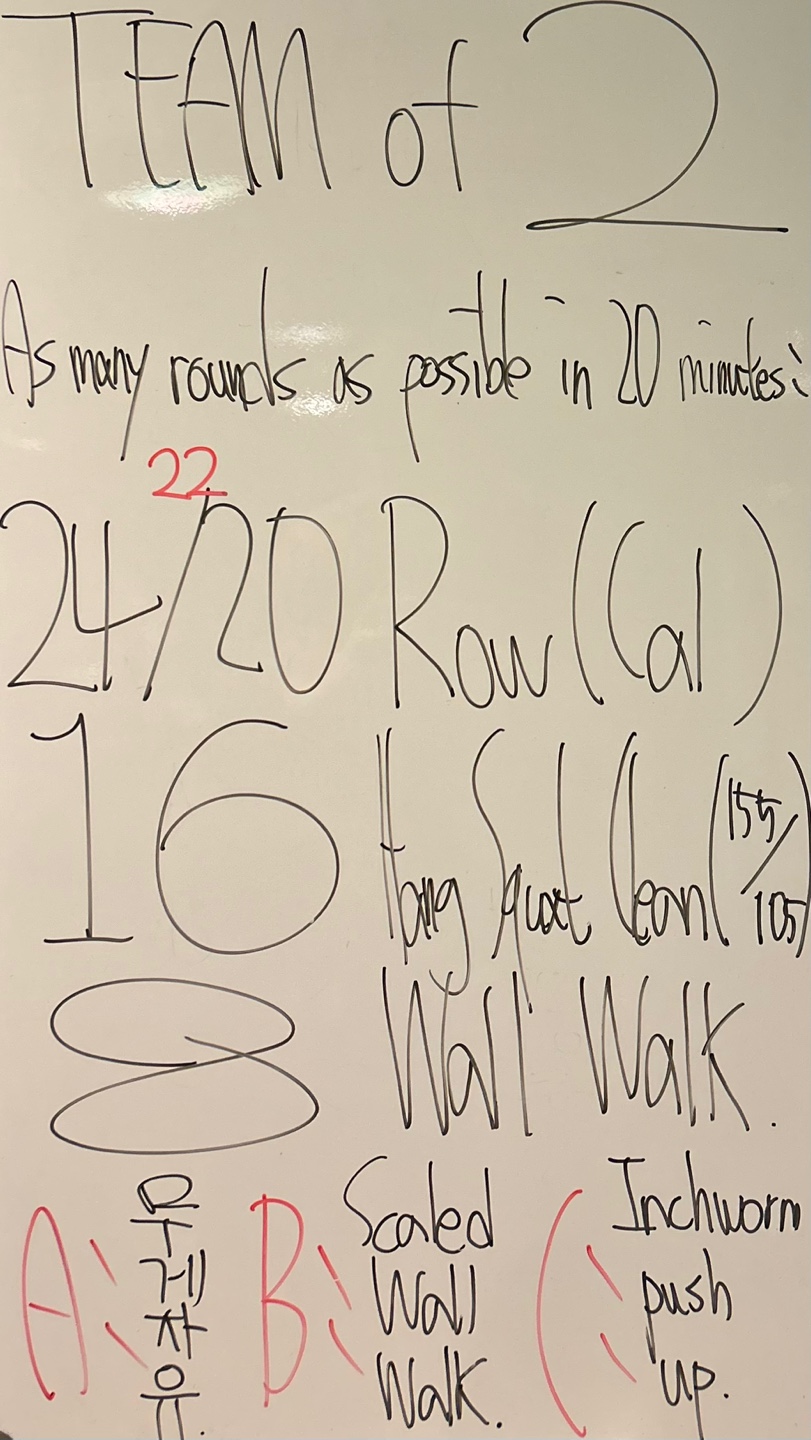 TEAM of 2
As many rounds as possible in 20 minutes:
22
24/20 Row (Cal)
16 Hang Squat Clean (155/105)
8 Wall Walk.
A: 무게자유.
B: Scaled Wall Walk.
C: Inchworm push up.